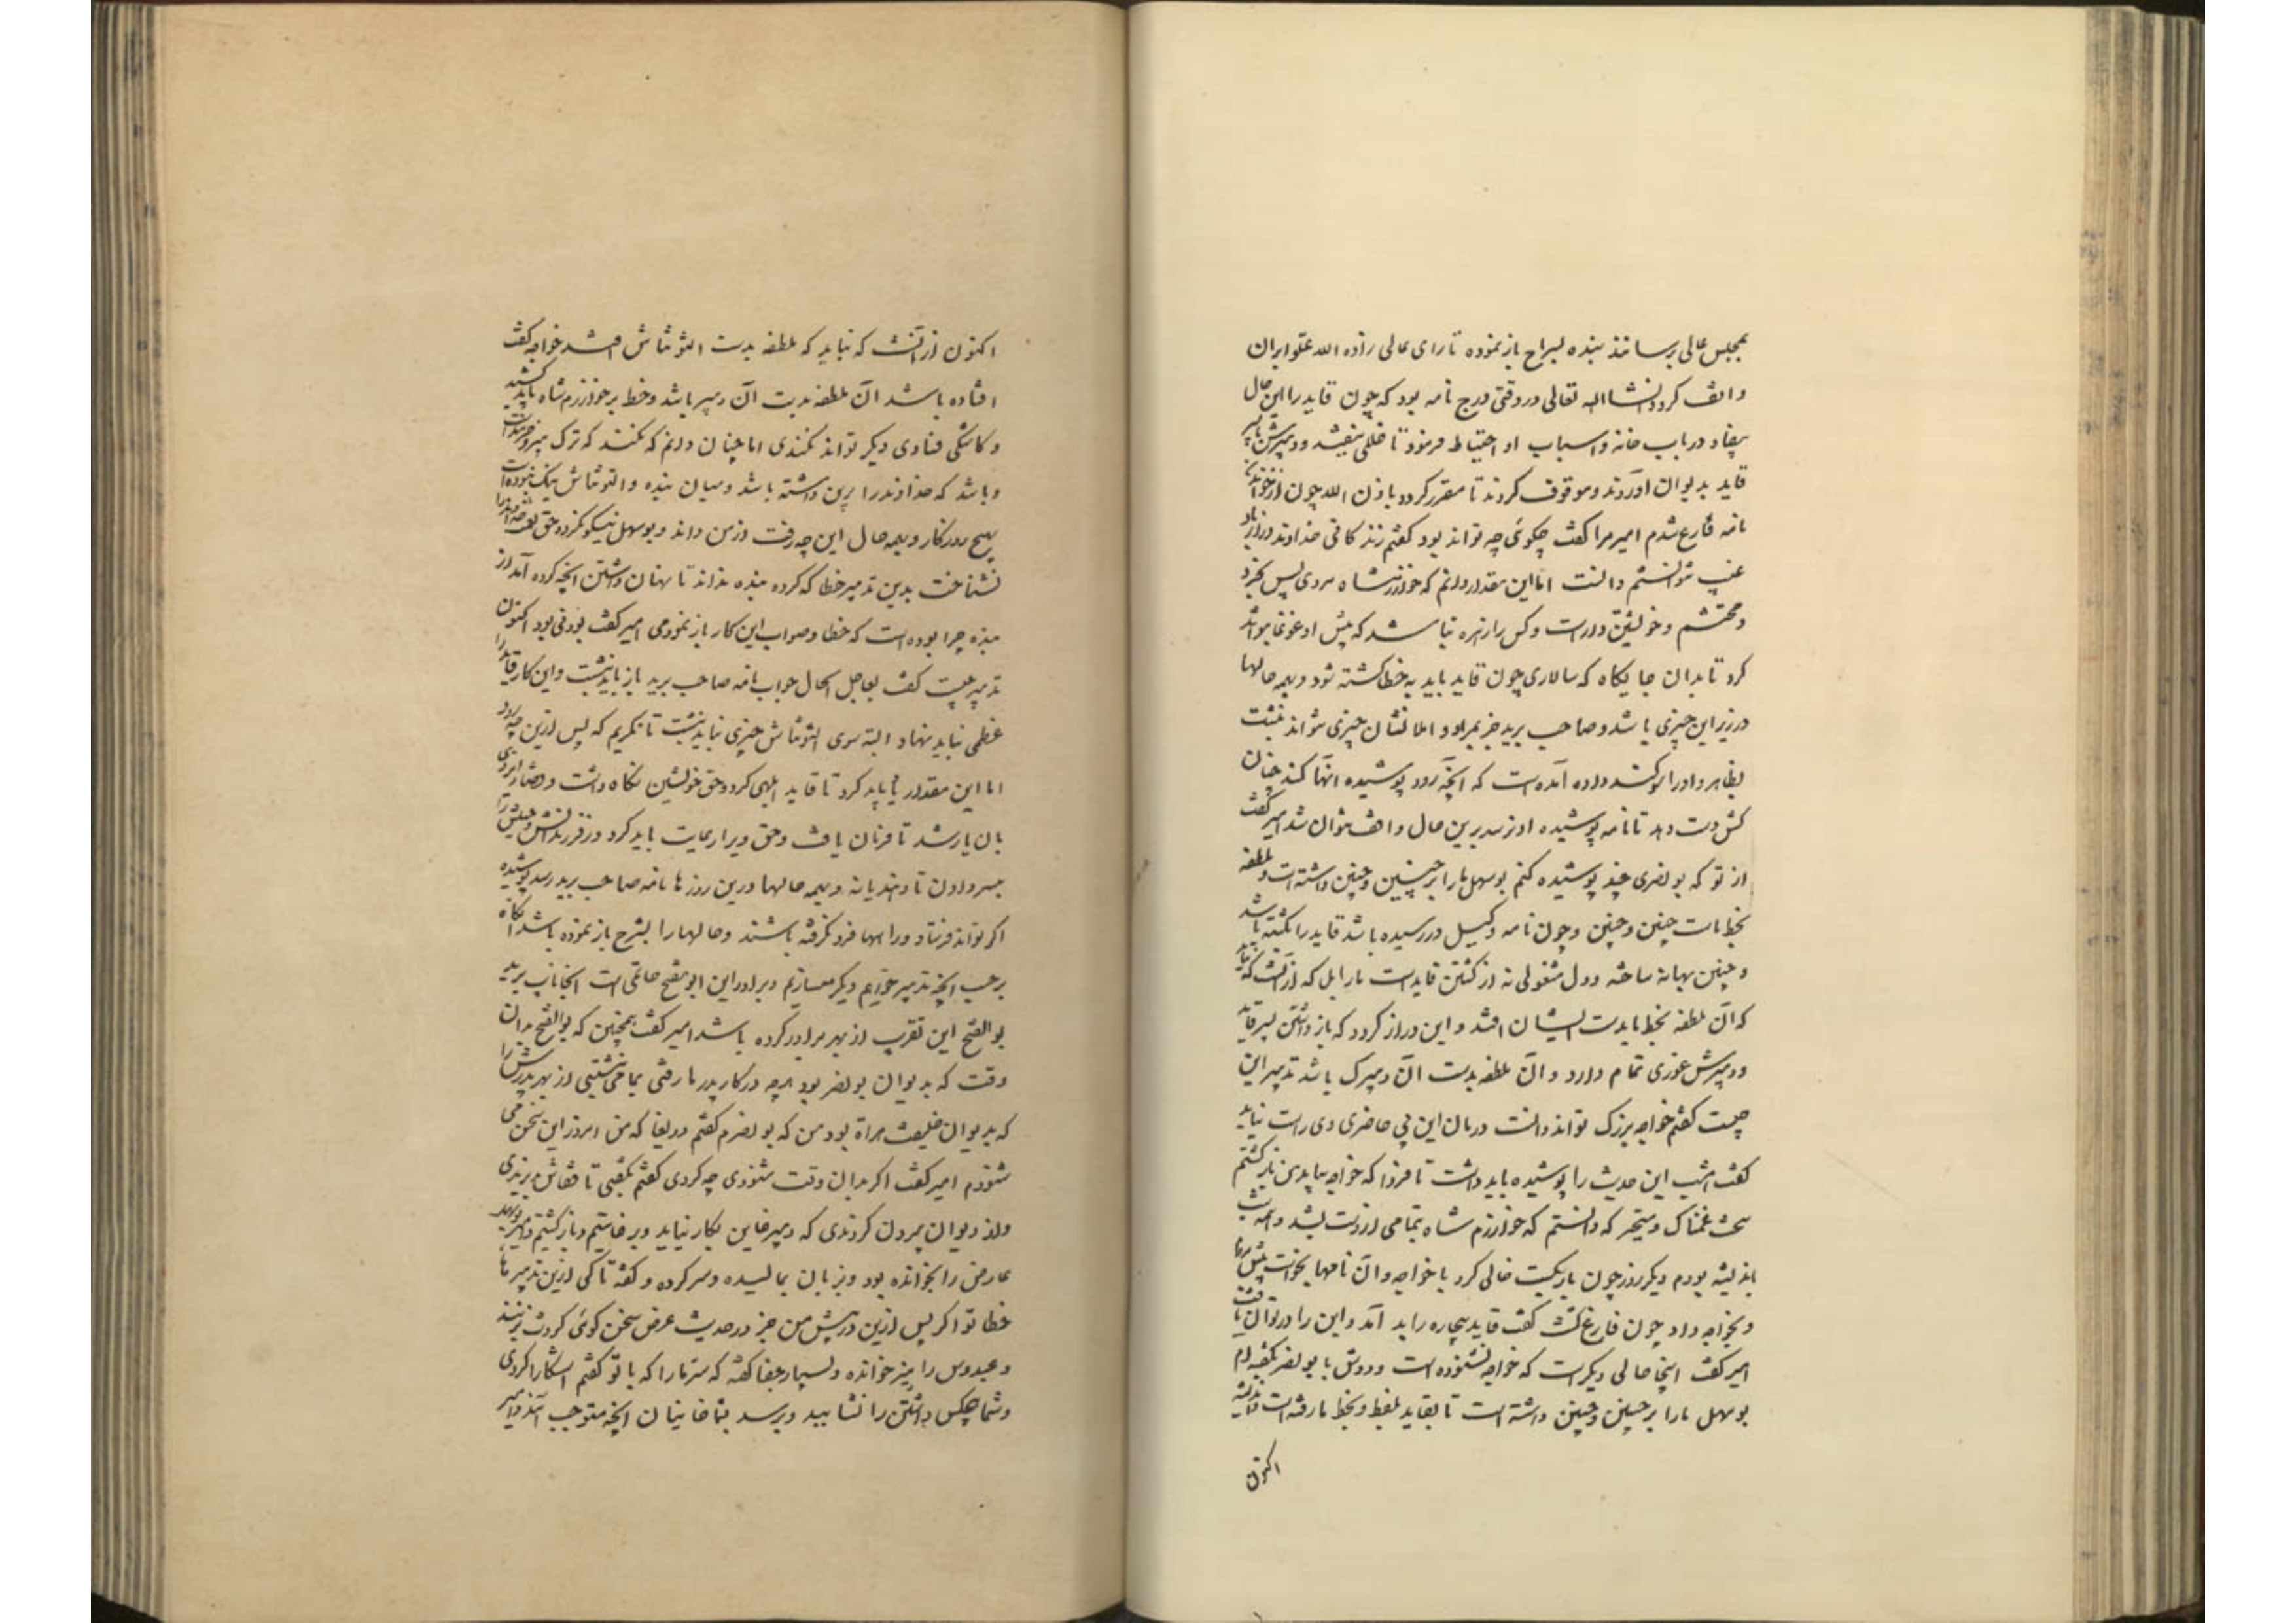 بمجلس عالی برسانند بنده بشرح باز نموده تا رای عالی زاده الله علوا بران
واقف کردد انشاالله تعالی و رقعتی درج نامه بود که چون قاید را این حال
بیفتاد در باب خانه و اسباب او احتیاط فرمود تا خللی نیفتد و دبیرش با پسر
قاید بدیوان آوردند و موقوف کردند تا مقرر کردد باذن الله چون از خواندن
نامه فارغ شدم امیر مرا کفت چکوئی چه تواند بود کفتم زندکانی خداوند دراز باد
غیب نتوانستم دانست اما این مقدار دانم که خوارزمشاه مردی بس بخرد
و محتشم و خویشتن دارست و کس را زهره نباشد که پیش او غوغا تواند
کرد تا بدان جایکاه که سالاری چون قاید باید بخطا کشته شود و بهمه حالها
در زیر این چیزی باشد و صاحب برید جز بمراد و املا نشان چیزی نتواند نبشت
بظاهر و او را سوکند داده آمده است که آنچه رود پوشیده انها کند چنان
کش دست دهد تا نامه پوشیده او نرسد برین حال واقف نتوان شد امیر کفت
از تو که بونصری چند پوشیده کنم بوسهل ما را بر چنین و چنین داشته است و ملطفه
بخط ماست چنین و چنین و چون نامه وکیل در رسیده باشد قاید را بکشته باشد
و چنین بهانه ساخته و دل مشغولی نه از کشتن قایدست ما را بل که از آنست که نباید
که آن ملطفه بخط ما بدست ایشان افتد و این دراز کردد که باز داشتن پسر قاید
و دبیرش غوری تمام دارد و آن ملطفه بدست آن دبیرک باشد تدبیر این
چیست کفتم خواجه بزرک تواند دانست درمان این بی حاضری وی راست نیاید
کفت امشب این حدیث را پوشیده باید داشت تا فردا که خواجه بیاید من بازکشتم
سخت غمناک و متحیر که دانستم که خوارزم شاه بتمامی از دست بشد و همه شب
باندیشه بودم دیکر روز چون بار بکسست خالی کرد با خواجه و آن نامها بخواست پیش بردم
و بخواجه داد چون فارغ کشت کفت قاید بیچاره را بد آمد و این را در توان یافت
امیر کفت اینجا حالی دیکر است که خواجه نشنوده است و دوش با بونصر بکفته ام
بوسهل ما را بر چنین و چنین داشته است تا بقاید ملفظ و بخط ما رفته است و اندیشه
اکنون
اکنون از آنست که نباید که ملطفه بدست التونتاش افتد خواجه کفت
افتاده باشد آن ملطفه بدست آن دبیر باشد و خط بر خوارزم شاه باید کشید
و کاشکی فسادی دیکر تواند نکندی اما چنان دانم که نکند که ترک پیر و خردمندست
و باشد که خداوند را برین داشته باشد و میان بنده و التونتاش نیک نبوده است
بهیچ روزکار و بهمه حال این چه رفت از من داند و بوسهل نیکو نکرد و حق نعمت خداوند را
نشناخت بدین تدبیر خطا که کرد و بنده نداند تا نهان داشتن آنچه کرده آمد از
بنده چرا بوده است که خطا و صواب این کار باز نمودمی امیر کفت بودنی بود اکنون
تدبیر چیست کفت بعاجل الحال جواب نامه صاحب برید باز باید نبشت و این کار قاید را
عظمی نباید نهاد و البته سوی التونتاش چیزی نباید نبشت تا نکریم که پس ازین چه رود
اما این مقدار یاد باید کرد تا قاید ابلهی کرد و حق خویشتن نکاه داشت و قضا ایزدی
بان یار شد تا فرمان یافت و حق ویرا رعایت باید کرد در فرزندانش و خیلش را
بپسر دادن تا دهند یا نه و بهمه حالها درین روزها نامه صاحب برید رسد پوشیده
اکر تواند فرستاد و راهها فرو نکرفته باشند و حالها را بشرح باز نموده باشد آنکاه
بر حسب آنچه تدبیر خواهیم دیکر میسازیم و برادر این ابوالفتح حاتمی است آنجا نایب برید
بوالفتح این تقرب از بهر برادر کرده باشد امیر کفت همچنین که بوالفتح بدان
وقت که بدیوان بونصر بود هرچه در کار پدر ما رفتی بما می نبشتی از بهر پدرش را
که بدیوان خلیفت هراة بود من که بونصرم کفتم دریغا که من امروز این سخن می
شنودم امیر کفت اکر بدان وقت شنودی چه کردی کفتم بکفتمی تا قفاش بزدندی
و از دیوان بیرون کردندی که دبیر خاین بکار نیاید و برخاستیم و بازکشتیم و امیر بوسهل
عارض را بخوانده بود و بزبان بمالیده و سرد کرده و کفته تا کی ازین تدبیرهای
خطا تو اکر پس ازین در پیش من جز در حدیث عرض سخن کوئی کردنت بزنند
و عبدوس را نیز خوانده و بسیار جفا کفته که سر ما را که با تو کفتم آشکارا کردی
و شما هیچکس داشتن را نشایید و برسد بشما خاینان آنچه مستوجب آنید و امیر